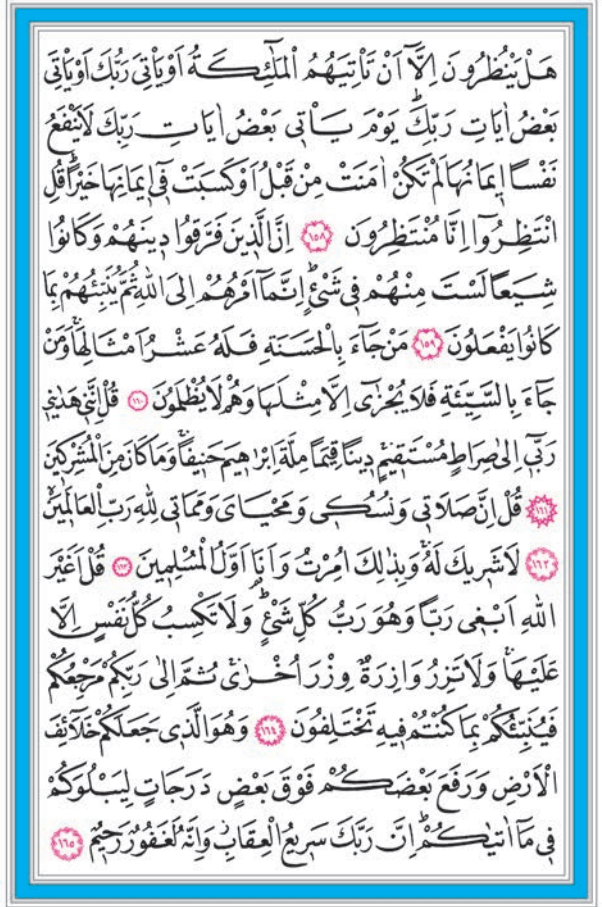 هَلْ يَنْظُرُونَ اِلَّٓا اَنْ تَأْتِيَهُمُ الْمَلٰٓئِكَةُ اَوْ يَأْتِيَ رَبُّكَ اَوْ يَأْتِيَ
بَعْضُ اٰيَاتِ رَبِّكَۜ يَوْمَ يَأْت۪ي بَعْضُ اٰيَاتِ رَبِّكَ لَا يَنْفَعُ
نَفْسًا ا۪يمَانُهَا لَمْ تَكُنْ اٰمَنَتْ مِنْ قَبْلُ اَوْ كَسَبَتْ ف۪ٓي ا۪يمَانِهَا خَيْرًاۜ قُلِ
انْتَظِرُٓوا اِنَّا مُنْتَظِرُونَ ﴿١٥٨﴾ اِنَّ الَّذ۪ينَ فَرَّقُوا د۪ينَهُمْ وَكَانُوا
شِيَعًا لَسْتَ مِنْهُمْ ف۪ي شَيْءٍۜ اِنَّمَٓا اَمْرُهُمْ اِلَى اللّٰهِ ثُمَّ يُنَبِّئُهُمْ بِمَا
كَانُوا يَفْعَلُونَ ﴿١٥٩﴾ مَنْ جَٓاءَ بِالْحَسَنَةِ فَلَهُ عَشْرُ اَمْثَالِهَاۚ وَمَنْ
جَٓاءَ بِالسَّيِّئَةِ فَلَا يُجْزٰٓى اِلَّا مِثْلَهَا وَهُمْ لَا يُظْلَمُونَ ﴿١٦٠﴾ قُلْ اِنَّن۪ي هَدٰين۪ي
رَبّ۪ٓي اِلٰى صِرَاطٍ مُسْتَق۪يمٍۚ د۪ينًا قِيَمًا مِلَّةَ اِبْرٰه۪يمَ حَن۪يفًاۚ وَمَا كَانَ مِنَ الْمُشْرِك۪ينَ
﴿١٦١﴾ قُلْ اِنَّ صَلَات۪ي وَنُسُك۪ي وَمَحْيَايَ وَمَمَات۪ي لِلّٰهِ رَبِّ الْعَالَم۪ينَۙ
﴿١٦٢﴾ لَا شَر۪يكَ لَهُۚ وَبِذٰلِكَ اُمِرْتُ وَاَنَا۬ اَوَّلُ الْمُسْلِم۪ينَ ﴿١٦٣﴾ قُلْ اَغَيْرَ
اللّٰهِ اَبْغ۪ي رَبًّا وَهُوَ رَبُّ كُلِّ شَيْءٍۜ وَلَا تَكْسِبُ كُلُّ نَفْسٍ اِلَّا
عَلَيْهَاۚ وَلَا تَزِرُ وَازِرَةٌ وِزْرَ اُخْرٰىۚ ثُمَّ اِلٰى رَبِّكُمْ مَرْجِعُكُمْ
فَيُنَبِّئُكُمْ بِمَا كُنْتُمْ ف۪يهِ تَخْتَلِفُونَ ﴿١٦٤﴾ وَهُوَ الَّذ۪ي جَعَلَكُمْ خَلَٓائِفَ
الْاَرْضِ وَرَفَعَ بَعْضَكُمْ فَوْقَ بَعْضٍ دَرَجَاتٍ لِيَبْلُوَكُمْ
ف۪ي مَٓا اٰتٰيكُمْۜ اِنَّ رَبَّكَ سَر۪يعُ الْعِقَابِۘ وَاِنَّهُ لَغَفُورٌ رَح۪يمٌ ﴿١٦٥﴾